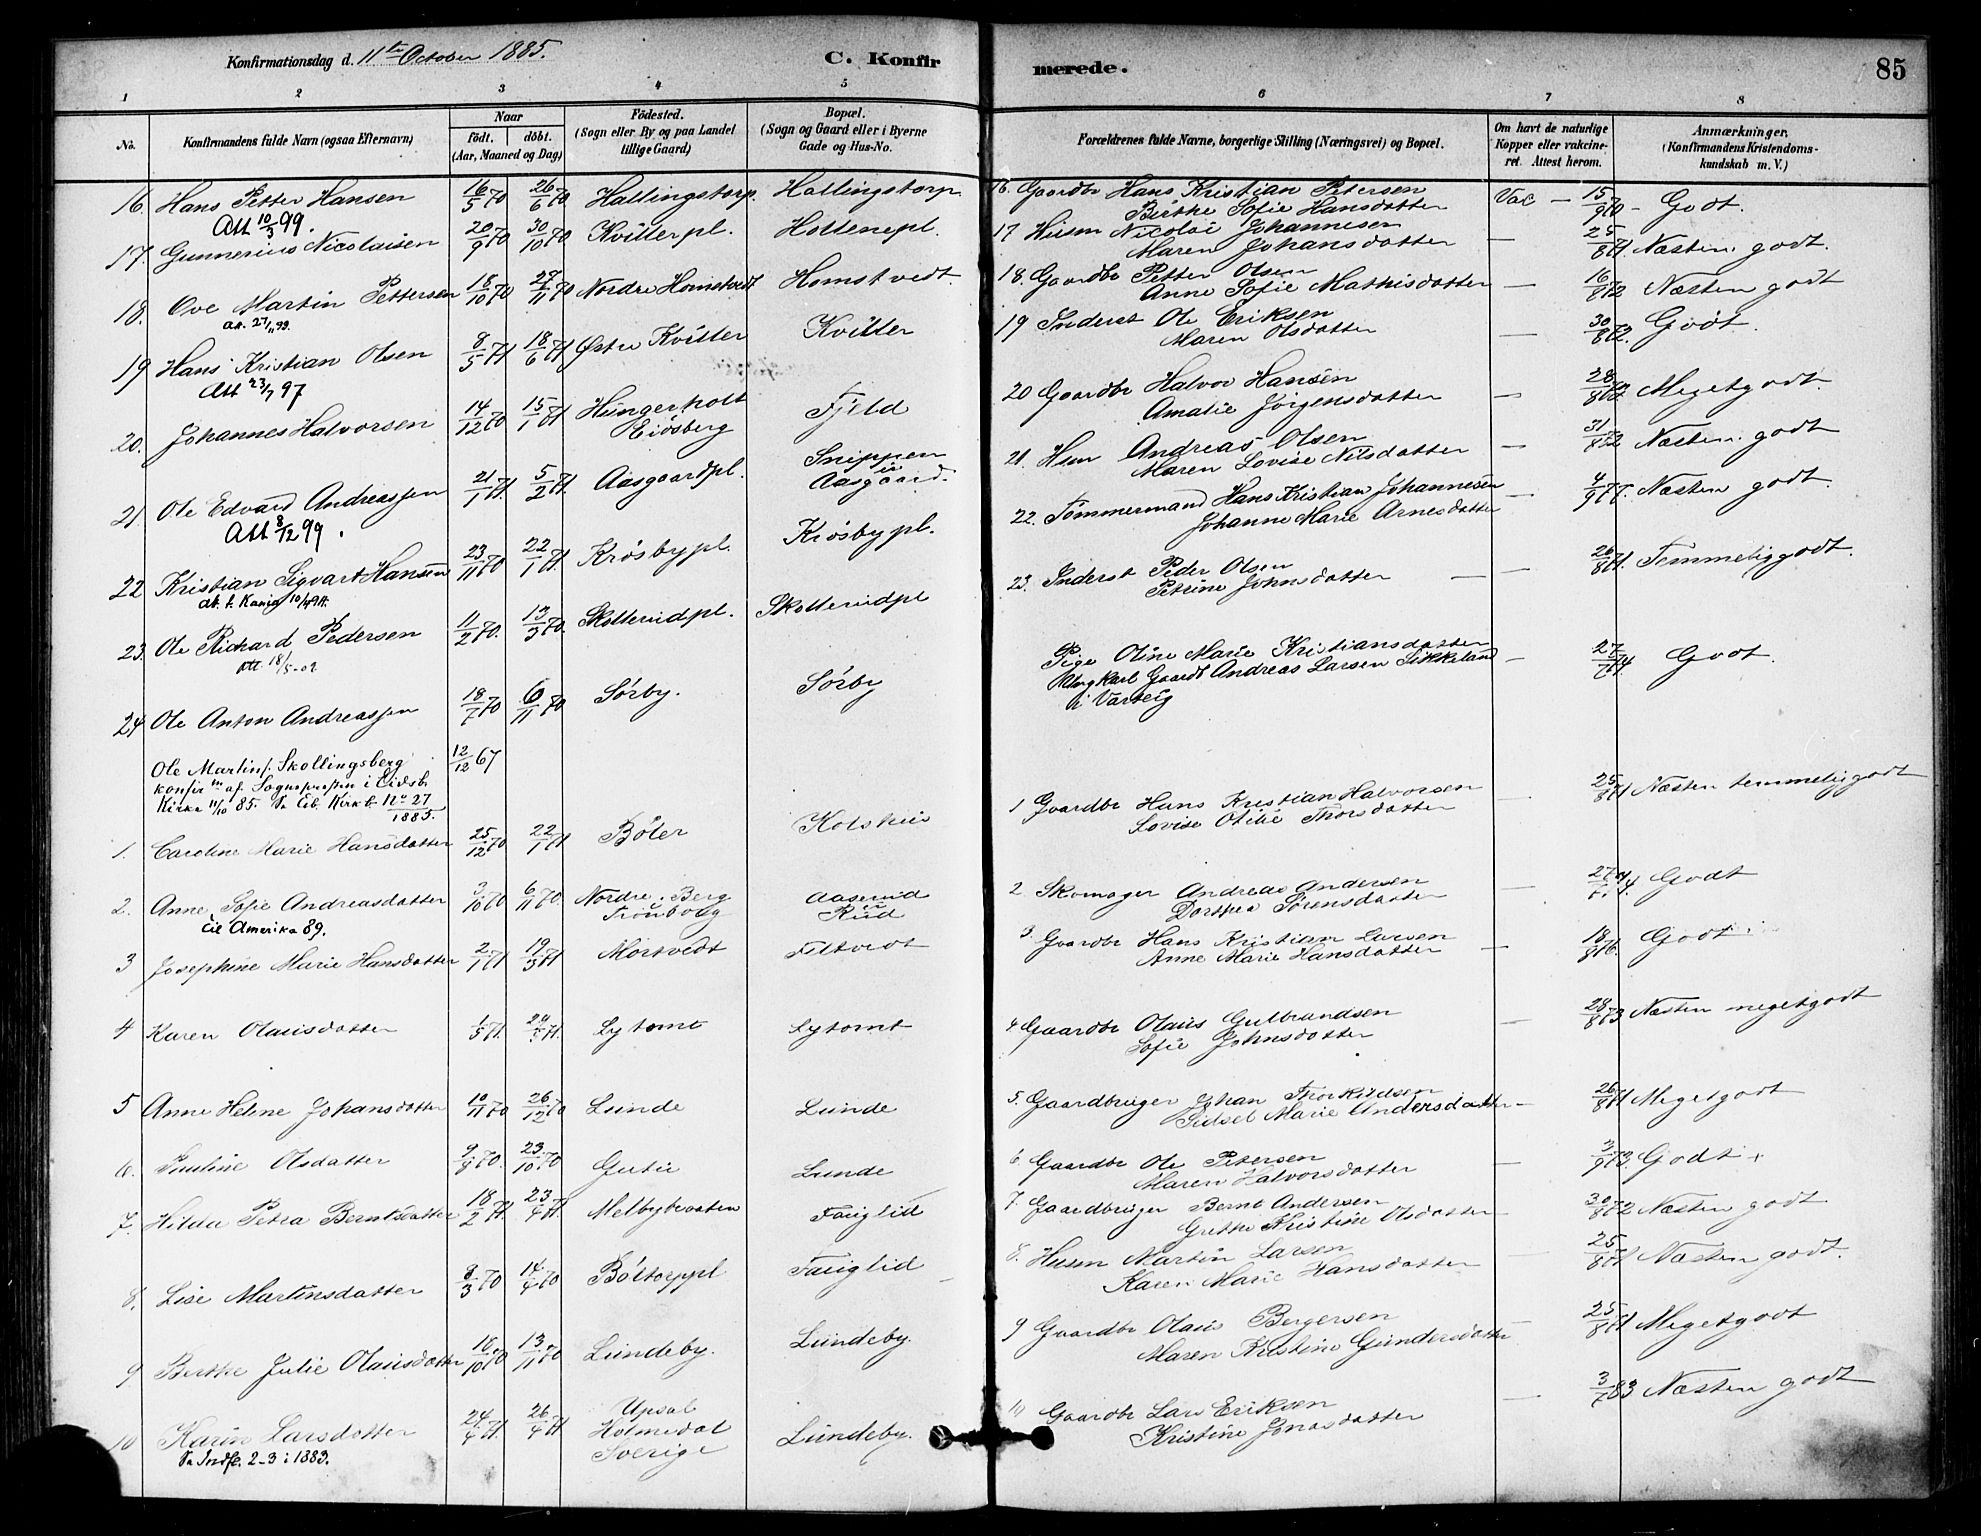 Konfirmationsdag d. 11te October 1885.
C. Konfir
merede.
85
1 2 3 4 5 6 7 8
No.
Konfirmandens fulde Navn (ogsaa Efternavn)
Naar
födt. döbt.
(Aar, Maaned og Dag)
Födested.
(Sogn eller By og paa Landet
tillige Gaard)
Bopæl.
(Sogn og Gaard eller i Byerne
Gade og Hus-No.
Forældrenes fulde Navne, borgerlige Stilling (Næringsvei) og Bopæl.
Om havt de naturlige
Kopper eller vakcine-
ret. Attest herom.
Anmærkninger.
(Konfirmandens Kristendoms-
kundskab m. V.)
16. Hans Petter Hansen 16/5 70 26/6 70 Hallingstorp. Hallingstorp. 16. Gaardbr Hans Kristian Petersen Vac — 15/9 70 - Godt.
Birthe Sofie Hansdatter
Att 10/3 99.
17. Gunnerius Nicolaisen 20/9 70 30/10 70 Kvitterpl. Hottenepl. 17 Husm Nicolai Johannesen — 25/8 71 Næsten godt.
Maren Johansdatter
18. Ove Martin Pettersen 18/10 70 27/11 70 Nordre Homstvedt Homstvedt. 18. Gaardbr Petter Olsen — 16/8 72 Næsten godt
Anne Sofie Mathisdatter
Att. 27/11 99.
19 Hans Kristian Olsen 8/5 71 18/6 71 Østre Kvitter Kvitter 19 Inderst Ole Eriksen — 30/8 72. Godt.
Maren Olsdatter
Att 23/7 97
20. Johannes Halvorsen 14/12 70 15/1 71 Hungerholt Fjeld 20 Gaardbr Halvor Hansen — 28/8 72 Meget godt.
Eidsberg
Amalie Jørgensdatter
21 Ole Edvard Andreassen 21/1 71. 5/2 71. Aasgaardpl. Snippen 21. Husm Andreas Olsen — 31/8 72 Næsten godt
u Aasgaard.
Maren Lovise Nilsdatter
Att 8/12 99.
22 Kristian Sigvart Hansen 23/11 70 22/1 71. Krösbypl. Krösbypl. 22. Tömmermand Hans Kristian Johannesen — 4/9 77. Næsten godt.
Johanne Marie Arnesdatter
23. Ole Richard Pedersen 11/2 70. 13/3 70. Skotterudpl. Skotterudpl 23. Inderst Peder Olsen — 26/8 71. Temmelig godt.
Petrine Johnsdatter
Att. 18/5-02
24 Ole Anton Andreassen 18/7 70 6/11 70 Sørby. Sørby Pige Oline Marie Kristiansdatter — Godt.
Ungkarl Gaardt Andreas Larsen Sikkeland
i Varteig
Ole Martins. Skollingsberg 12/12 67
konfirm af. Sognepresten i Eidsb.
Kirke 11/10 85. Se Eib. Kirkb. No 27
1885.
1. Caroline Marie Hansdatter 25/12 70 22/1 71 Böler Kolshus 1 Gaardbr Hans Kristian Halvorsen 25/8 71 Næsten temmelig godt
Lovise Otilie Thorsdatter
2. Anne Sofie Andreasdatter 3/10 70 6/11 70. Nordre Berg Aaserud 2 Skomager Andreas Andersen — Godt
Trömborg u Rud
Dorthea Sørensdatter
til Amerika 89.
3 Josephine Marie Hansdatter 2/1 71 19/3 71 Mörtvedt Feltvedt 3. Gaardbr Hans Kristian Larsen — 18/9 76. Godt
Anne Marie Hansdatter
4 Karen Olausdatter 1/5 71. Lytomt Lytomt 4. Gaardbr Olaus Gulbrandsen — 28/8 73 Næsten meget godt
Sofie Johnsdatter
5 Anne Helene Johansdatter 10/11 70 26/12 70 Lunde Lunde 5. Gaardbruger Johan Thorkildsen — 26/8 71 Meget godt
Sidsel Marie Andersdatter
6. Pauline Olsdatter 9/9 70. 23/10 70 Gutu Lunde 6 Gaardbr Ole Petersen — 3/9 73. Godt
Maren Halvorsdatter
7. Hilda Petra Berntsdatter 18/2 71. 23/4 71. Melbybraaten Fauglid 7. Gaardbruger Bernt Andersen 30/8 72 Næsten godt
Grethe Kristine Olsdatter
8. Lise Martinsdatter 8/3 70 14/4 70 Böltorppl Fauglid 8. Husm Martin Larsen — 25/8 71 Næsten godt.
Karen Marie Hansdatter
9 Berthe Julie Olausdatter 18/10 70 13/11 70 Lundeby. Lundeby. 9 Gaardbr Olaus Bergersen 25/8 71 Meget godt
Maren Kristine Gundersdatter
10 Karin Larsdatter 24/4 71. 26/4 71 Upsal Lundeby. 10 Gaardbr Lars Eriksen — 3/7 83 Næsten godt
Holmedal
Sverige
Kristine Jonasdatter
Se Indfl. 2-3 i 1883.